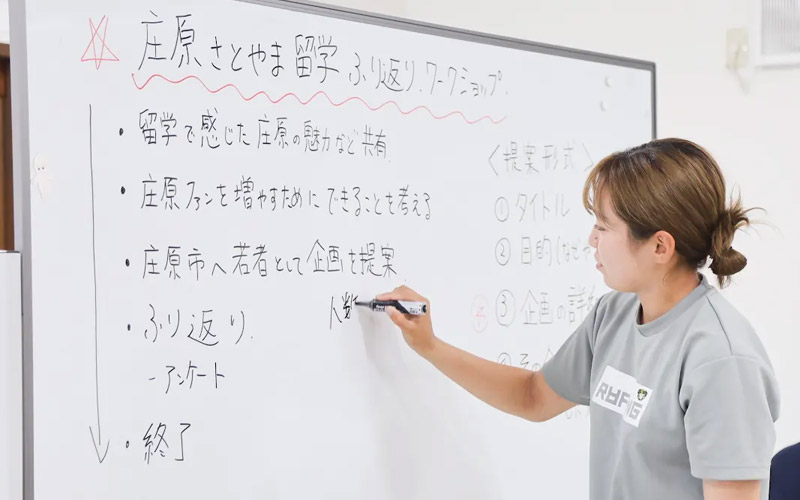 ☆ 庄原さとやま留学 ふり返り ワークショップ.
・留学で感じた庄原の魅力など共有.
・庄原ファンを増やすためにできることを考える
・庄原市へ若者として企画を提案.
・ふり返り.
- アンケート
・終了
人数
<提案形式>
①タイトル
②目的(など
③企画の詳
④その